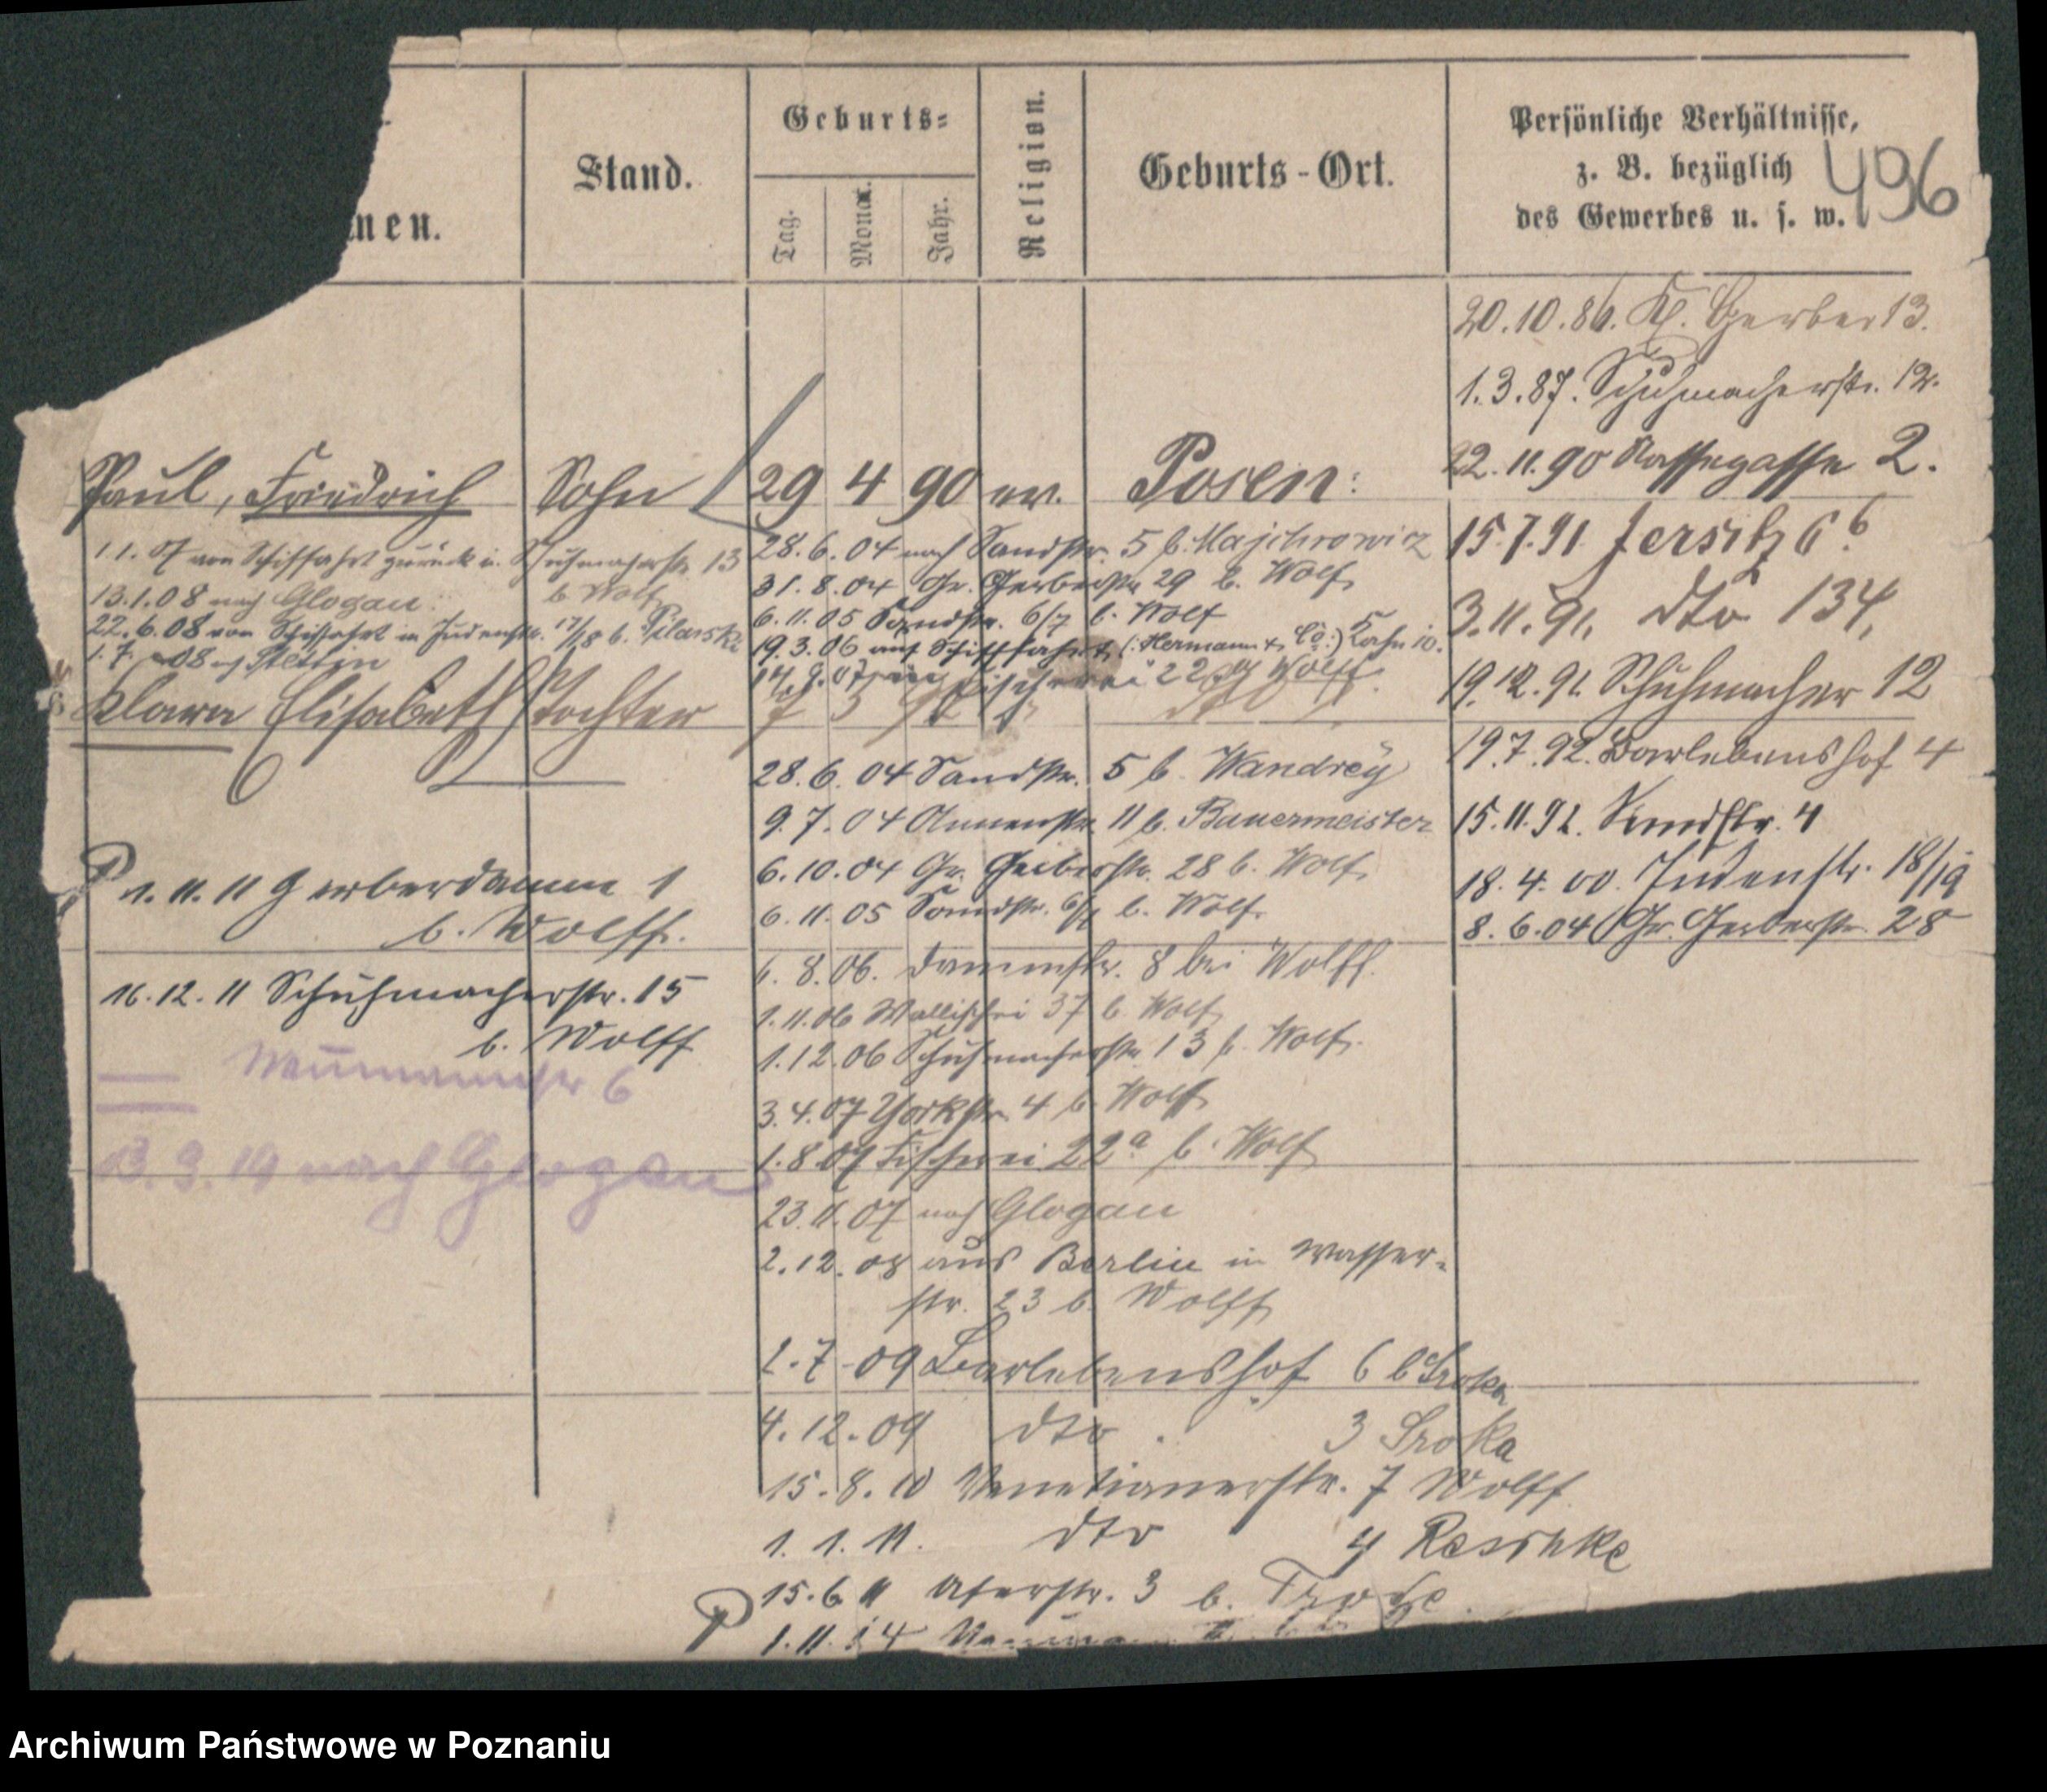 nen.
Stand.
Geburts=
Tag.
Monat.
Jahr.
Religion.
Geburts-Ort.
Persönliche Verhältnisse,
z. B. bezüglich
des Gewerbes u. s. w.
496
20.10.86. Kl. Gerber 13.
1.3.87. Schuhmacherstr. 12.
22.11.90 Nassegasse 2.
15.7.91 Jersitz 6 b
3.11.91. dto 134,
19.12.91. Schuhmacher 12
19.7.92. Barlebenshof 4
15.11.92. Sandstr. 4
18.4.00. Judenstr. 18/19
8.6.04 Gr. Gerberstr. 28
Paul, Friedrich Sohn 29 4 90 ev. Posen
1.1.07 von Schiffahrt zurück in Schuhmacherstr. 13
b. Wolf
13.1.08 nach Glogau
22.6.08 von Schiffahrt in Judenstr. 17/18 b. Pilarski
1.7.08 n. Stettin
28.6.04 nach Sandstr. 5 b. Majchrowicz
31.8.04 Gr. Gerberstr. 29 b. Wolf
6.11.05 Sandstr. 6/7 b. Wolf
19.3.06 auf Schiffahrt (: Hermann & Co :) Kahn 10.
Fischerei 22 Wolff
Klara Elisabeth Tochter
28.6.04 Sandstr. 5 b. Wandrey
9.7.04 Annenstr. 11 b. Bauermeister
6.10.04 Gr. Gerberstr. 28 b. Wolf
6.11.05 Sandstr. 6/7 b. Wolf
6.8.06. Dammstr. 8 bei Wolff.
1.11.06 Wallischei 37 b. Wolf
1.12.06 Schuhmacherstr. 13 b. Wolf.
3.4.07 Yorkstr. 4 b. Wolff
1.8.07 Fischerei 22a b. Wolf
23.11.07 nach Glogau
2.12.08 aus Berlin in Wasser-
str. 23 b. Wolff
1.7.09 Barlebenshof 6 b Sroka
4.12.09 dto. 3 Sroka
15.8.10 Venetianerstr. 7 Wolff
1.1.11. dto 4 Reschke
15.6.11 Uferstr. 3 b.
1.11.14
P 1.11.11 Gerberdamm 1
b. Wolff.
16.12.11 Schuhmacherstr. 15
b. Wolff
6
nach Glogau
P
Archiwum Państwowe w Poznaniu